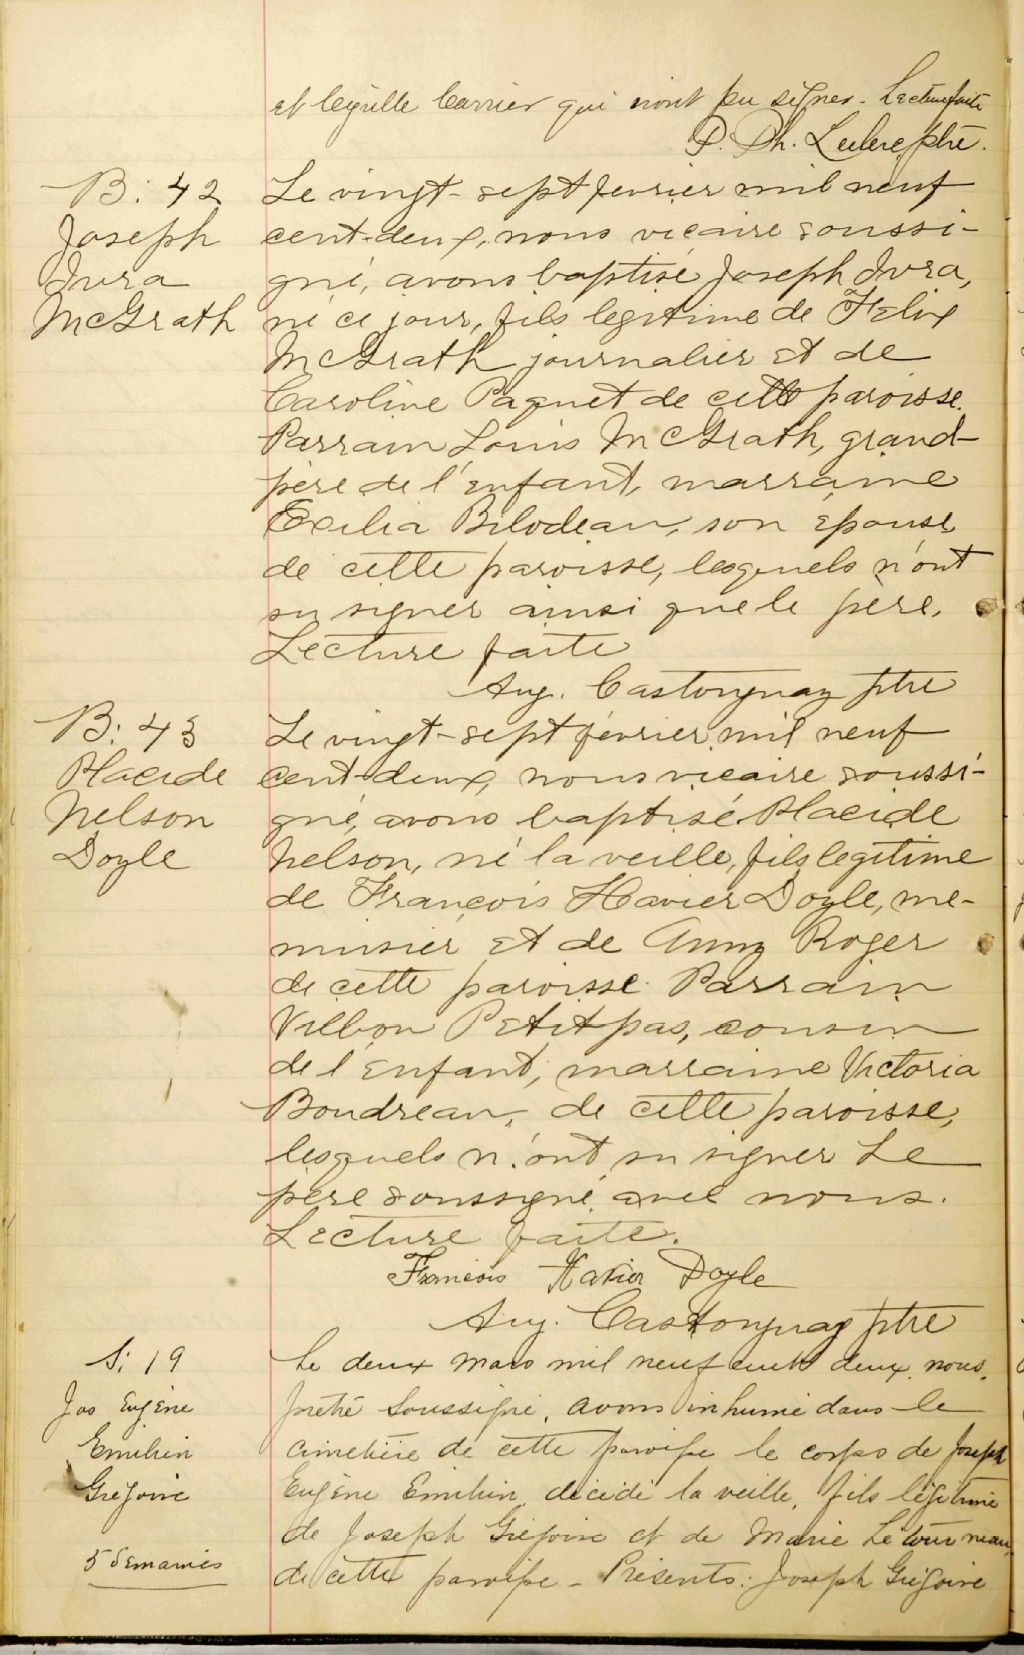 et Cyrille Carrier qui n'ont pu signer. Lecture faite
P. Ph. Leclerc ptre.
B: 42
Joseph
Ivra
McGrath
Le vingt-sept fevrier mil neuf
cent-deux, nous vicaire soussi-
gné, avons baptisé Joseph Ivra,
né ce jour, fils legitime de Felix
McGrath journalier et de
Caroline Paquet de cette paroisse.
Parrain Louis McGrath, grand-
père de l'enfant, marraine
Exilia Bilodeau, son épouse,
de cette paroisse, lesquels n'ont
su signer ainsi que le père.
Lecture faite
Aug. Castonguay ptre
B: 43
Placide
Nelson
Doyle
Le vingt-sept février mil neuf
cent-deux, nous vicaire soussi-
gné, avons baptisé Placide
Nelson, né la veille, fils legitime
de François Xavier Doyle, me-
nuisier et de Anny Roger
de cette paroisse. Parrain
Petitpas, cousin
de l'enfant, marraine Victoria
Boudreau, de cette paroisse,
lesquels n'ont su signer Le
père soussigné avec nous.
Lecture faite.
François Xavier Doyle
Aug. Castonguay ptre
S: 19
Jos Eugène
Emilien
Grégoire
5 semaines
Le deux mars mil neuf cent deux, nous,
prêtre soussigné, avons inhumé dans le
cimetière de cette paroisse le corps de Joseph
Eugène Emilien, décédé la veille, fils légitime
de Joseph Grégoire et de Marie Letourneau,
de cette paroisse - Présents: Joseph Grégoire